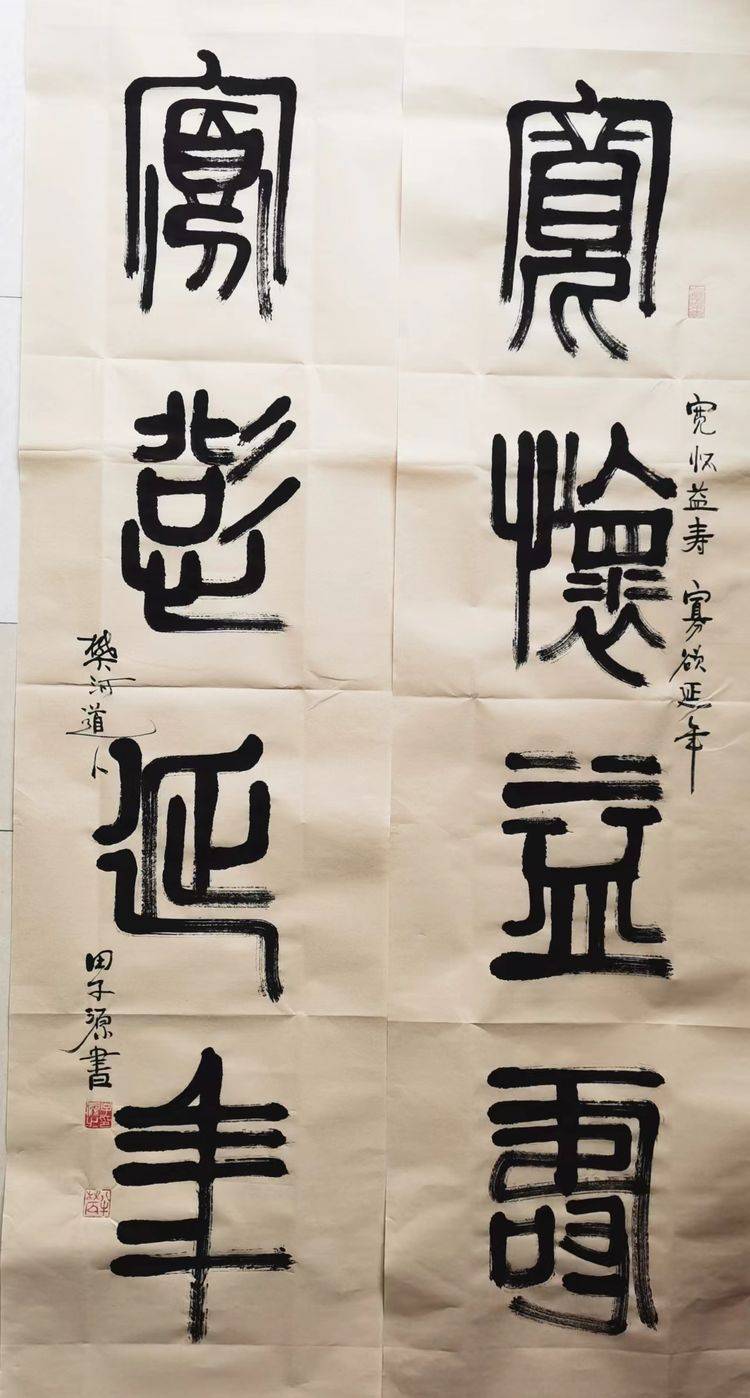 宽怀益寿 寡欲延年
寬懷益壽
寡慾延年
樊河道人
田子源書